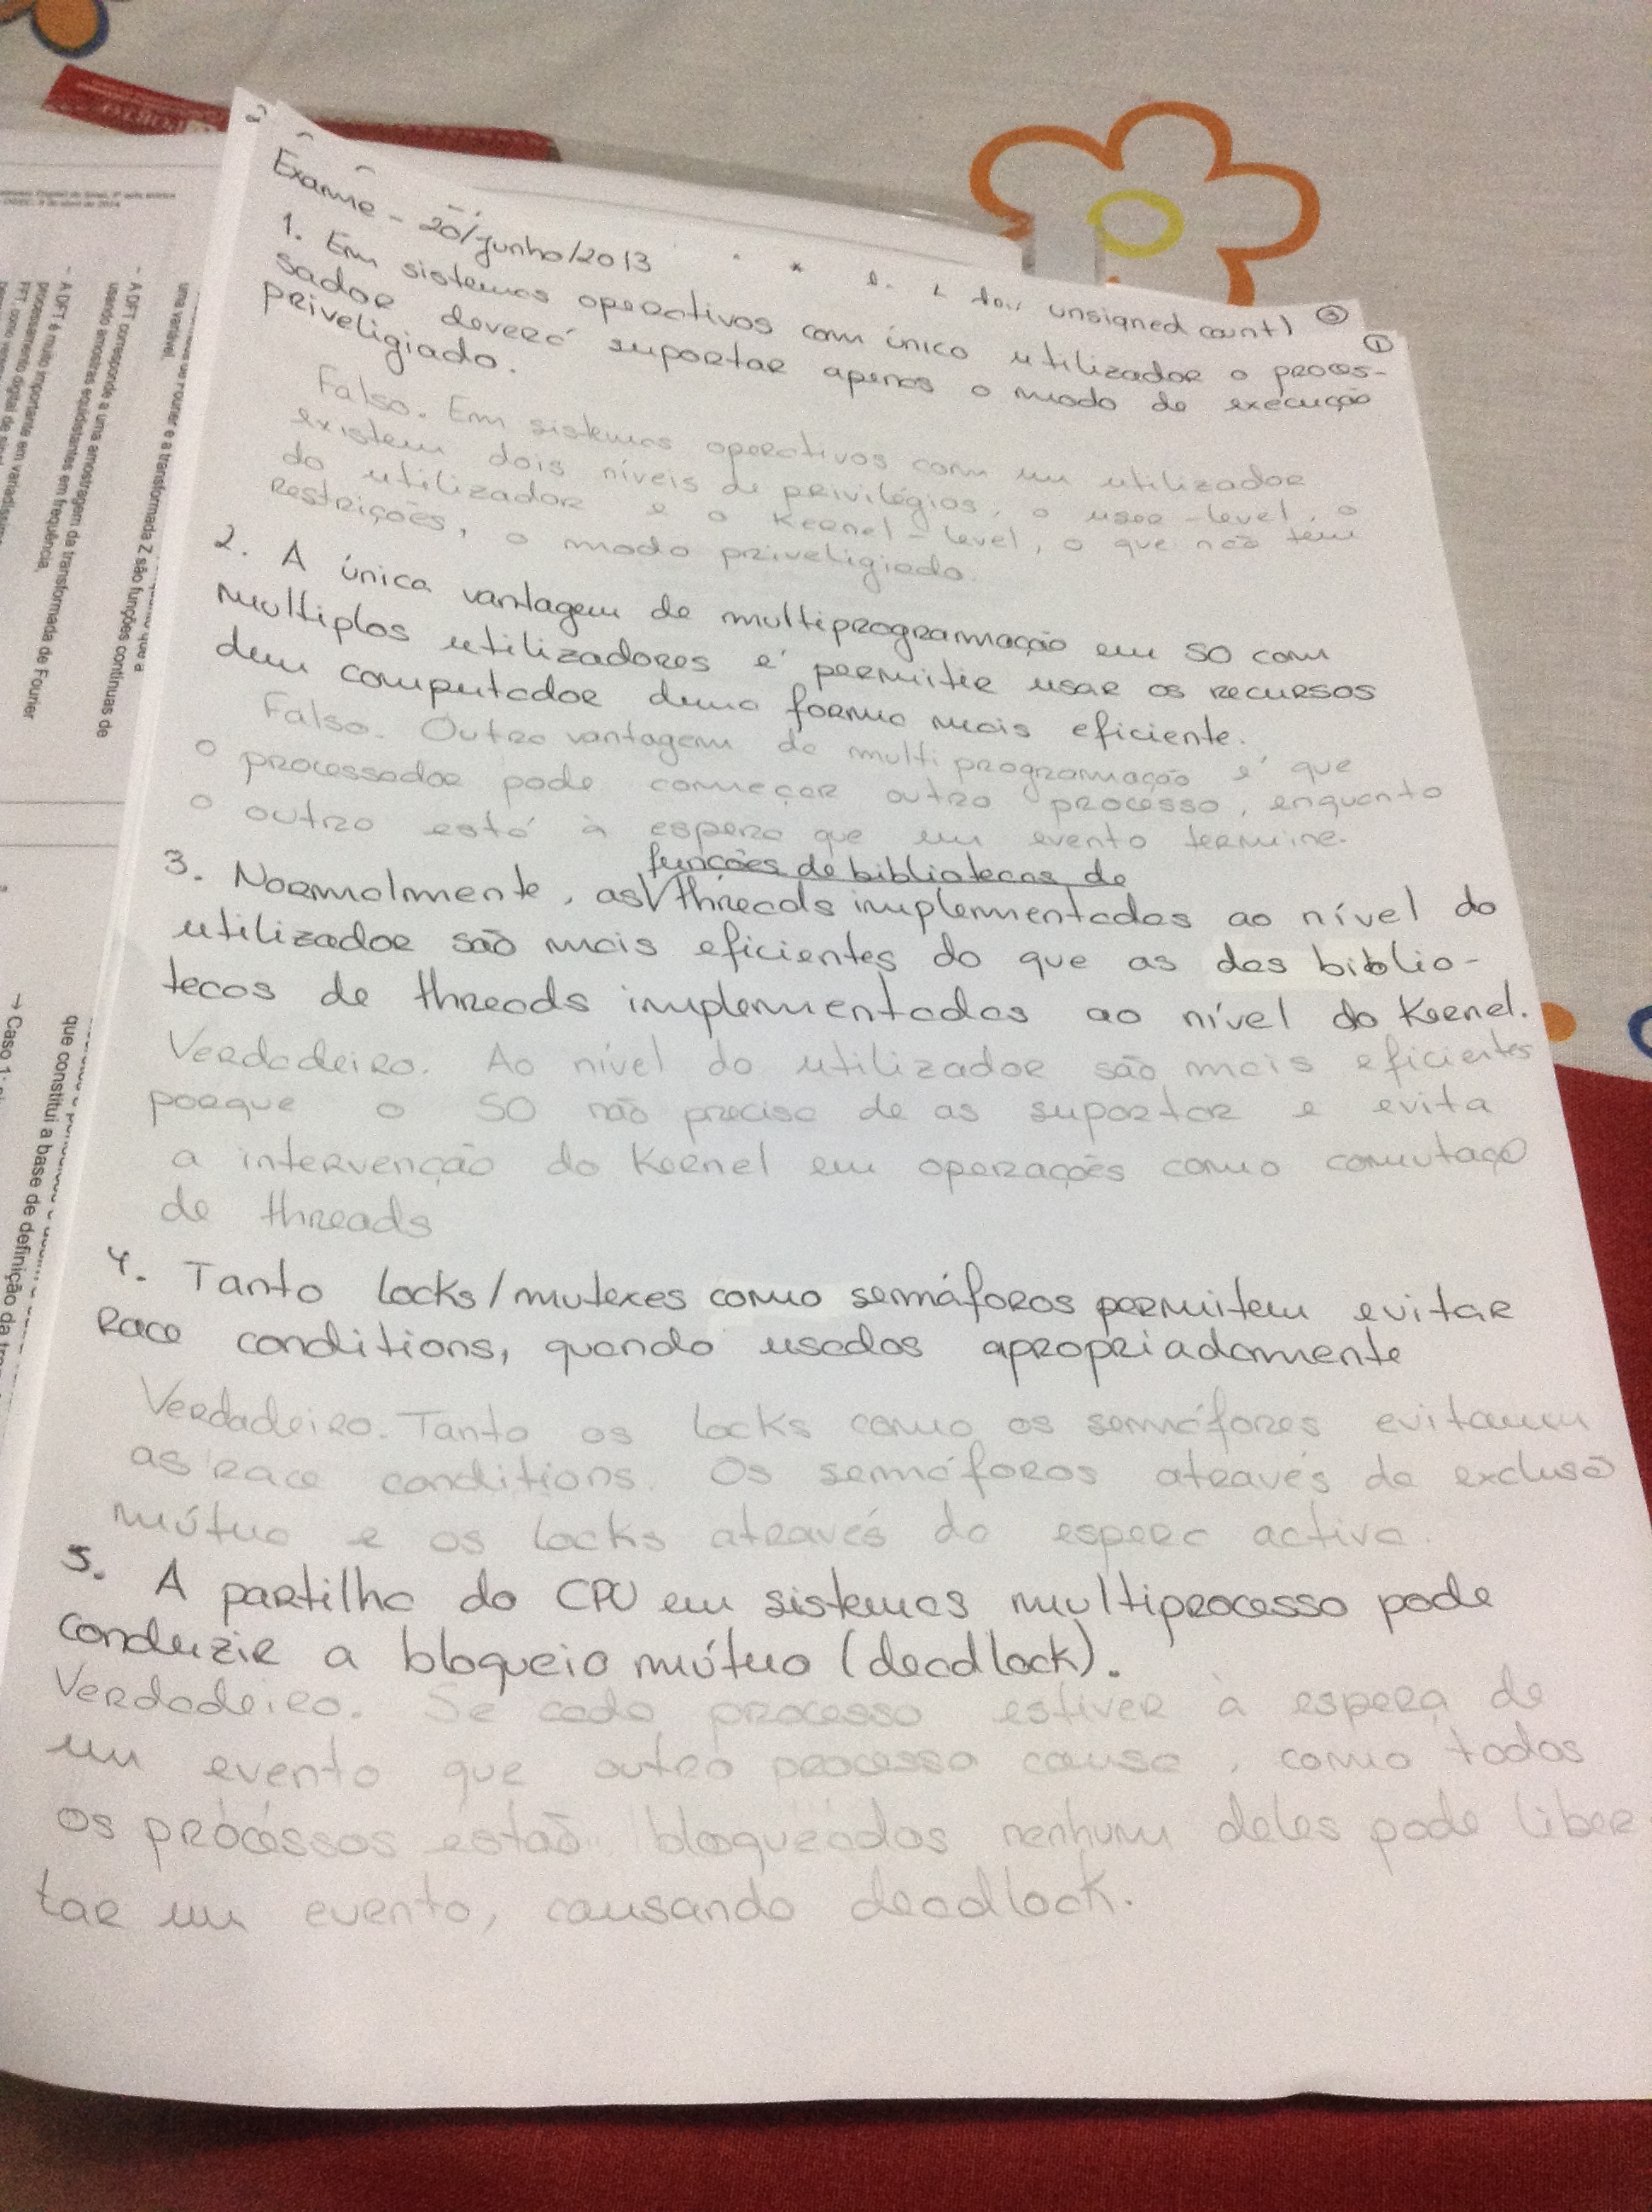 Exame - 20/junho/2013
unsigned count) ③
①
1. Em sistemas operativos com único utilizador o proces-
sador deverá suportar apenas o modo de execução
priveligiado.
Falso. Em sistemas operativos com um utilizador
existem dois níveis de privilégios, o user-level, o
do utilizador e o Kernel-level, o que não têm
restrições, o modo priveligiado.
2. A única vantagem de multiprogramação em SO com
multiplos utilizadores é permitir usar os recursos
dum computador duma forma mais eficiente.
Falso. Outra vantagem da multiprogramação é que
o processador pode começar outro processo, enquanto
o outro está à espera que um evento termine.
funções de bibliotecas de
3. Normalmente, as threads implementadas ao nível do
utilizador são mais eficientes do que as das biblio-
tecas de threads implementadas ao nível do Kernel.
Verdadeiro. Ao nível do utilizador são mais eficientes
porque o SO não precisa de as suportar e evita
a intervenção do Kernel em operações como comutação
de threads
4. Tanto locks/mutexes como semáforos permitem evitar
race conditions, quando usados apropriadamente
Verdadeiro. Tanto os locks como os semáforos evitam
as race conditions. Os semáforos através da exclusão
mútua e os locks através da espera activa.
5. A partilha do CPU em sistemas multiprocesso pode
conduzir a bloqueio mútuo (deadlock).
Verdadeiro. Se cada processo estiver à espera de
um evento que outro processo cause, como todos
os processos estão bloqueados nenhum deles pode liber
tar um evento, causando deadlock.
uma variável.
- A DFT corresponde a uma amostragem da transformada Z são funções contínuas de
usando amostras equidistantes em frequência.
- A DFT é muito importante em variadíssimas
que constitui a base de definição da
→ Caso 1: